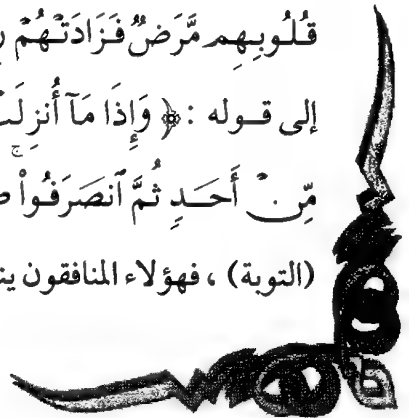 قُلُوبِهِم مَّرَضٌ فَزَادَتْهُمْ
إلى قوله : ﴿ وَإِذَا مَآ أُنزِلَتْ
مِّنْ أَحَدٍ ثُمَّ ٱنصَرَفُوا۟
(التوبة) ، فهؤلاء المنافقون